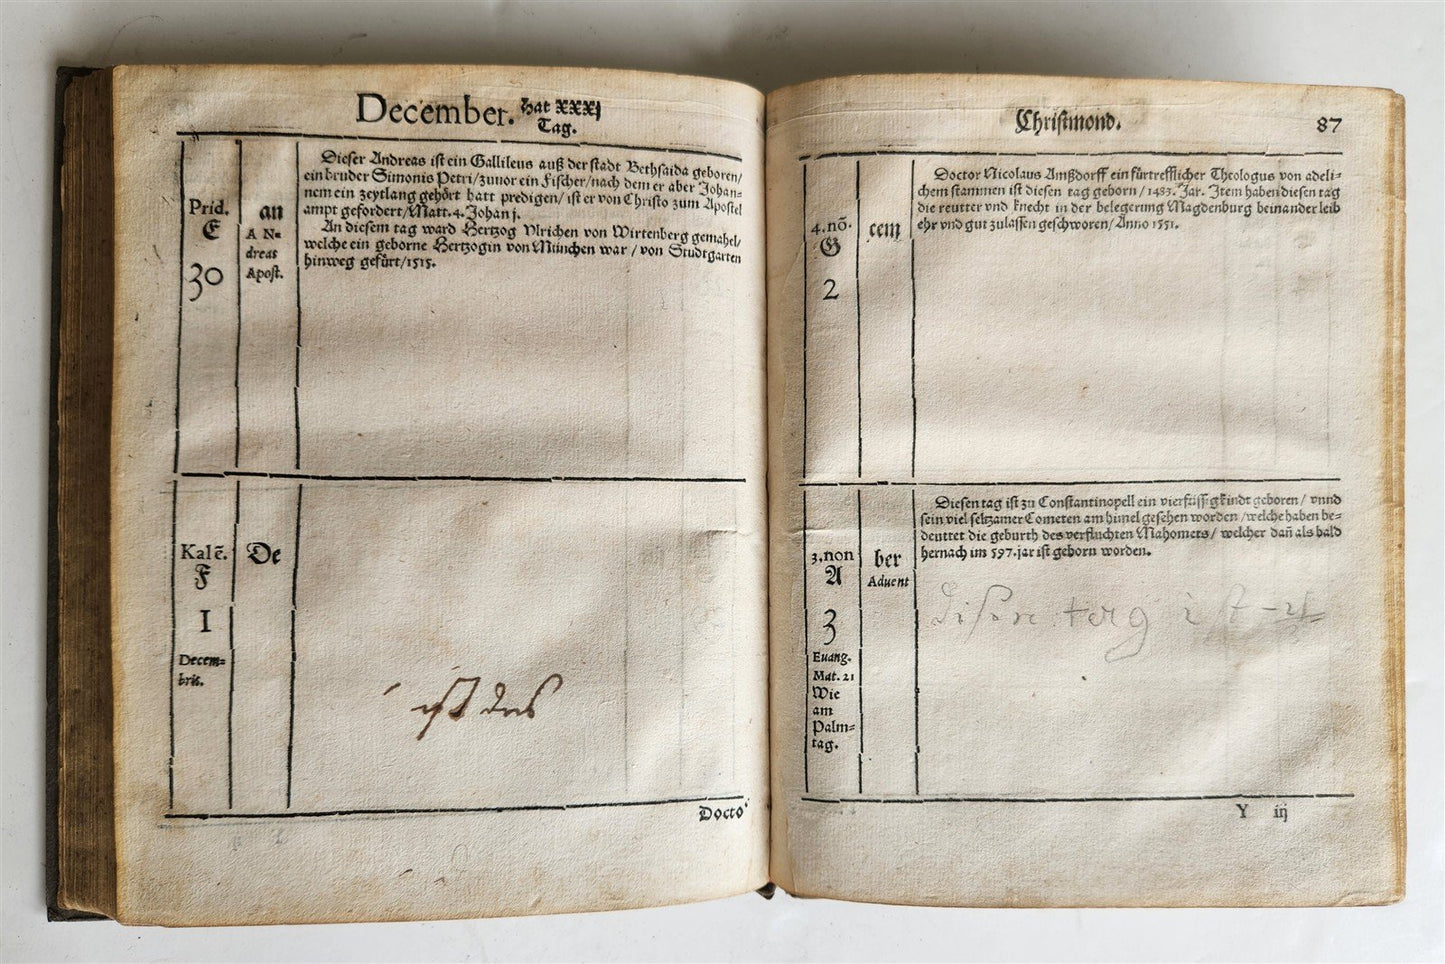 December. Hat XXXj
Tag.
Prid.
E
30
an
A N=
dreas
Apost.
Dieser Andreas ist ein Gallileus auß der stadt Bethsaida geboren/
ein bruder Simonis Petri/zuuor ein Fischer/nach dem er aber Johan=
nem ein zeytlang gehört hatt predigen/ist er von Christo zum Apostel
ampt gefordert/Matt.4.Johan j.
An diesem tag ward Hertzog Vlrichen von Wirtenberg gemahel/
welche ein geborne Hertzogin von München war/von Studtgarten
hinweg gefürt/1515.
Kalē.
F
1
Decem=
bris.
De
ist das
Docto
Christmond.
87
4.nõ.
G
2
cem
Doctor Nicolaus Amßdorff ein fürtrefflicher Theologus von adeli=
chem stammen ist diesen tag geborn/1483.Jar. Item haben diesen tag
die reutter vnd knecht in der belegerung Magdenburg beinander leib
ehr vnd gut zulassen geschworen/Anno 1551.
3.non
A
3
Euang.
Mat. 21
Wie
am
Palm=
tag.
ber
Aduent
Diesen tag ist zu Constantinopell ein vierfüssg kindt geboren/ vnnd
sein viel seltzamer Cometen am himel gesehen worden/welche haben be=
deuttet die geburth des verfluchten Mahomets/ welcher dañ als bald
hernach im 597.jar ist geborn worden.
Y iij